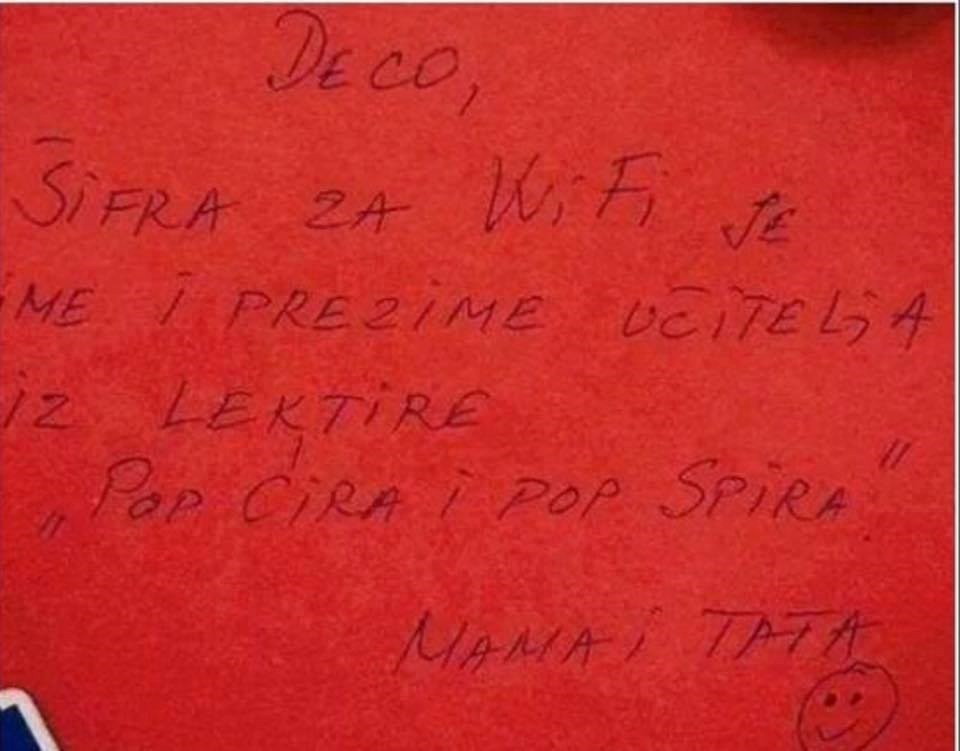 DECO,
ŠIFRA ZA WiFi JE
IME I PREZIME UČITELJA
IZ LEKTIRE
„POP ĆIRA I POP SPIRA"
MAMA I TATA